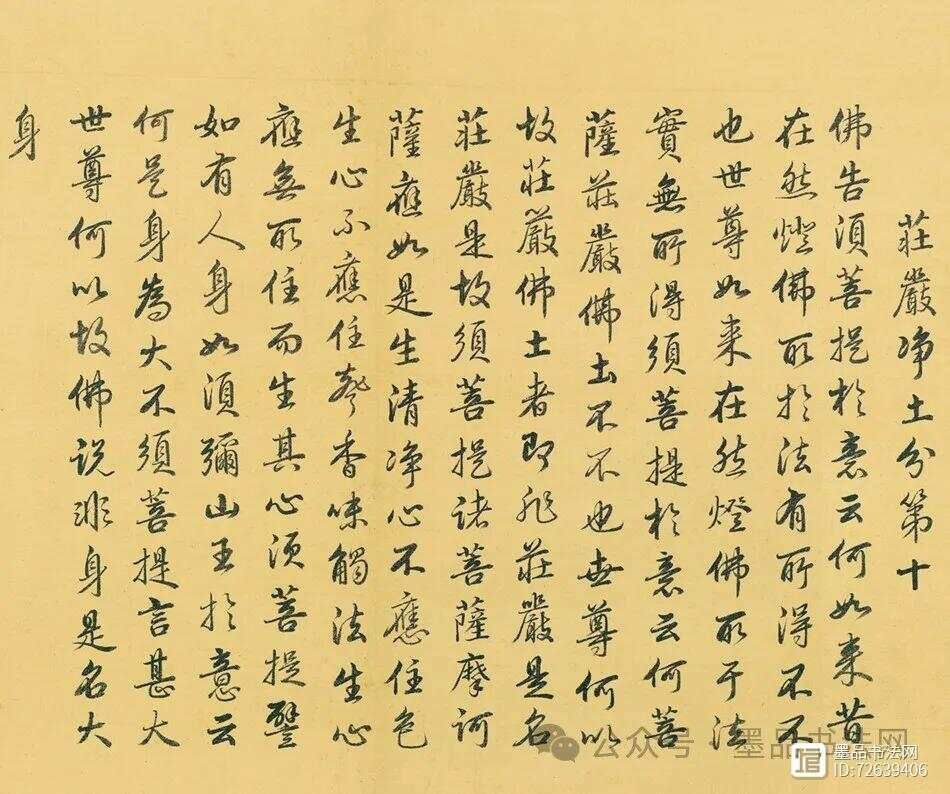 莊嚴净土分第十
佛告須菩提於意云何如来昔
在然燈佛所於法有所得不不
也世尊如来在然燈佛所于法
實無所得須菩提於意云何菩
薩莊嚴佛土不不也世尊何以
故莊嚴佛土者即非莊嚴是名
莊嚴是故須菩提諸菩薩摩訶
薩應如是生清净心不應住色
生心不應住聲香味觸法生心
應無所住而生其心須菩提譬
如有人身如須彌山王於意云
何是身為大不須菩提言甚大
世尊何以故佛說非身是名大
身
公众号·墨品书法网
墨品书法网
ID:72639406